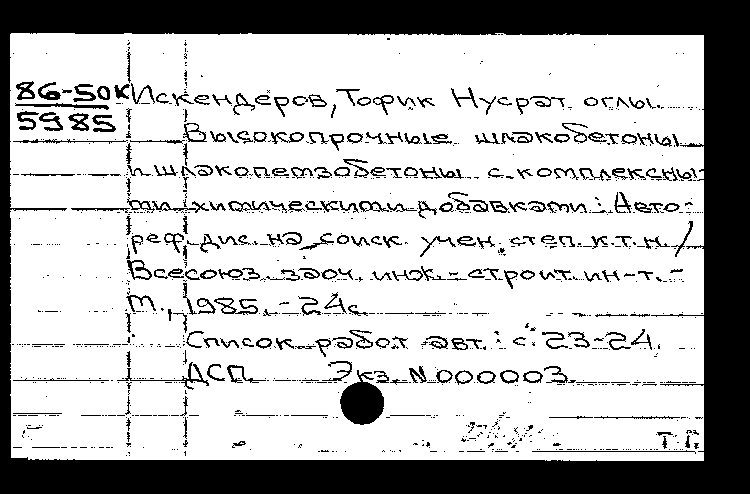 86-50к Искендеров, Тофик Нусрат оглы.
5985
Высокопрочные шлакобетоны
и шлакопемзобетоны с комплексны-
ми химическими добавками: Авто-
реф. дис. на соиск. учен. степ. к.т.н. /
Всесоюз. заоч. инж.-строит. ин-т. -
М., 1985. - 24с.
Список работ авт.: с. 23-24.
ДСП. Экз. N 000003.
Т. Г.